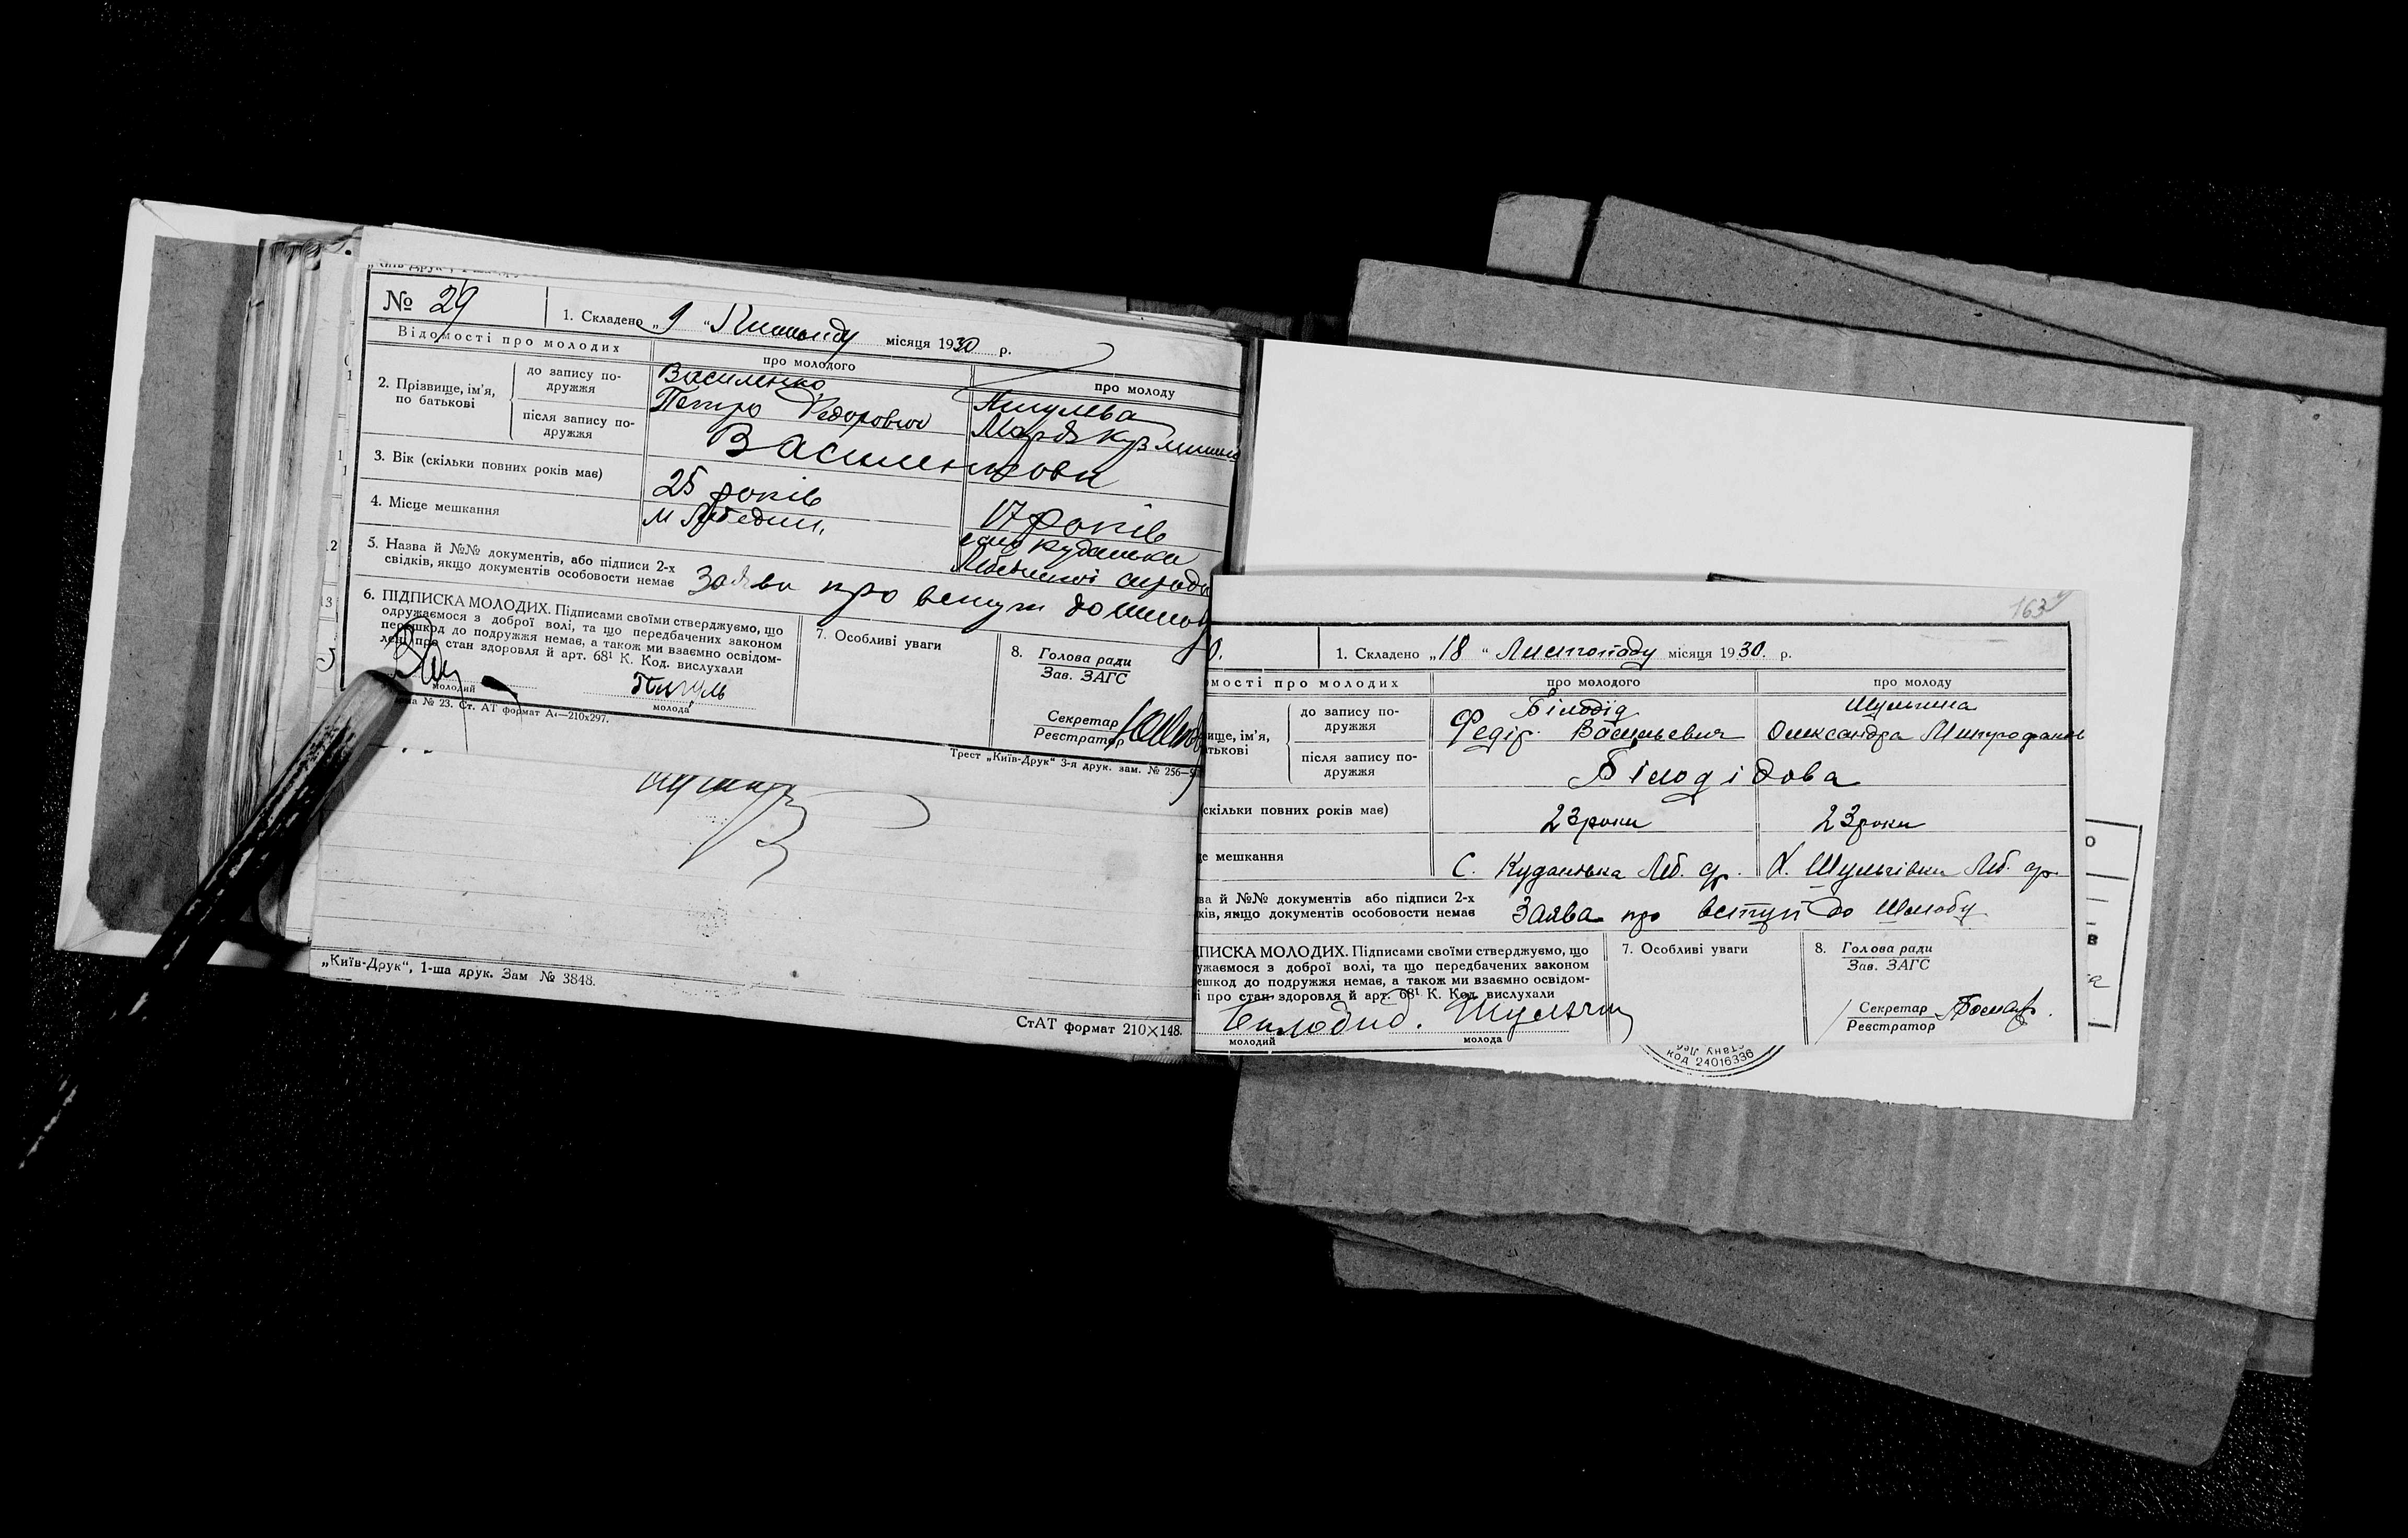 № 29
1. Складено „ 9 “ Листопаду місяця 1930 р.
Відомості про молодих
про молодого
про молоду
2. Прізвище, ім’я, по батькові
до запису по-
дружжя
Василенко
Петро Федорович
після запису по-
дружжя
Василенкови
3. Вік (скільки повних років має)
25 років
17 років
4. Місце мешкання
м Лебедин,
село Куданівка
5. Назва й №№ документів, або підписи 2-х
свідків, якщо документів особовости немає
Заява про вступ до
6. ПІДПИСКА МОЛОДИХ. Підписами своїми стверджуємо, що
одружаємося з доброї волі, та що передбачених законом
перешкод до подружжя немає, а також ми взаємно освідом-
лені про стан здоровля й арт. 68¹ К. Код. вислухали
молодий
молода
7. Особливі уваги
8. Голова ради
Зав. ЗАГС
Секретар
Реєстратор
№ 23. Ст. АТ формат А4—210х297.
Трест „Київ-Друк“ 3-я друк. зам. № 256—
„Київ-Друк“, 1-ша друк. Зам № 3848.
СтАТ формат 210×148.
163
0.
1. Складено „ 18 “ Листопаду місяця 1930. р.
мості про молодих
про молодого
про молоду
вище, ім’я,
атькові
до запису по-
дружжя
Білодід
Федір Васильевич
Шульгина
Олександра
після запису по-
дружжя
Білодідова
скільки повних років має)
23 роки
23 роки
е мешкання
С. Куданівка Леб. др.
Х. Шульгівки Леб. др.
ва й №№ документів або підписи 2-х
ків, якщо документів особовости немає
Заява про вступ до Шлюбу
ПИСКА МОЛОДИХ. Підписами своїми стверджуємо, що
ужаємося з доброї волі, та що передбачених законом
ешкод до подружжя немає, а також ми взаємно освідом-
і про стан здоровля й арт. 68¹ К. Код. вислухали
Білодид.
молодий
молода
7. Особливі уваги
8. Голова ради
Зав. ЗАГС
Секретар
Реєстратор
код 24016336